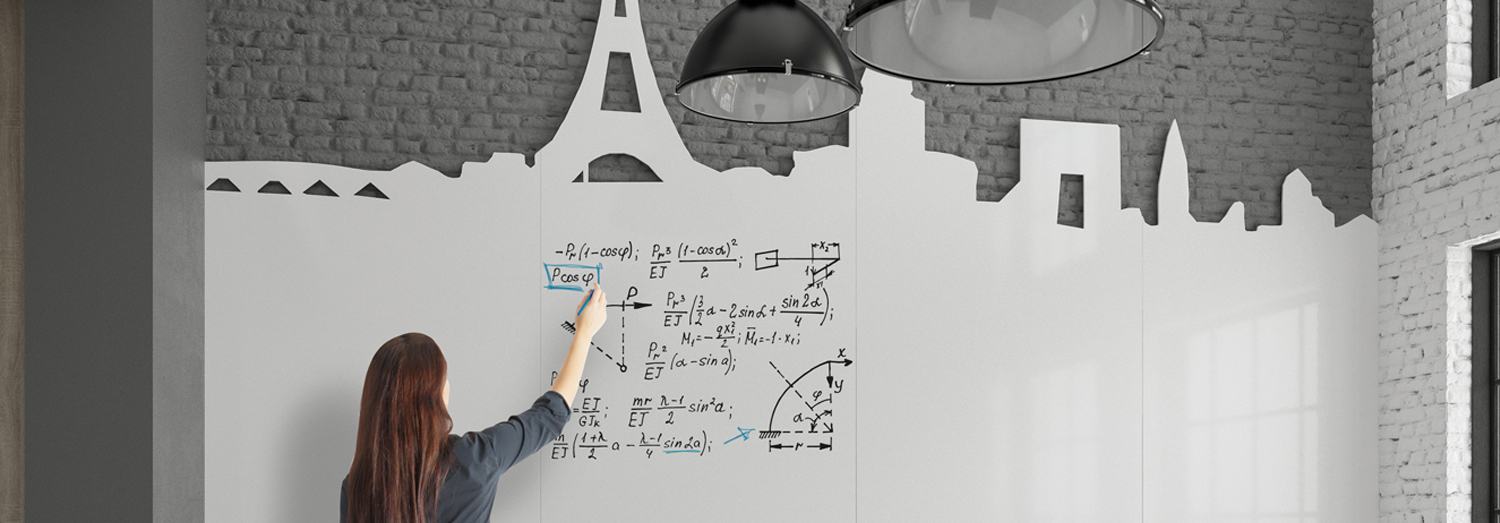 -Pr(1-cosφ); Pr³/EJ (1-cosα)²/2; x₂
Pcosφ
P
Pr³/EJ (3/2 α - 2sinα + sin2α/4);
M₁=-qx₁²/2; M̄₁=-1·x₁;
Pr²/EJ (α-sinα);
x
y
φ
=EJ/GJₖ; mr/EJ λ-1/2 sin²α;
α
/EJ (1+λ/2 α - λ-1/4 sin2α);
r